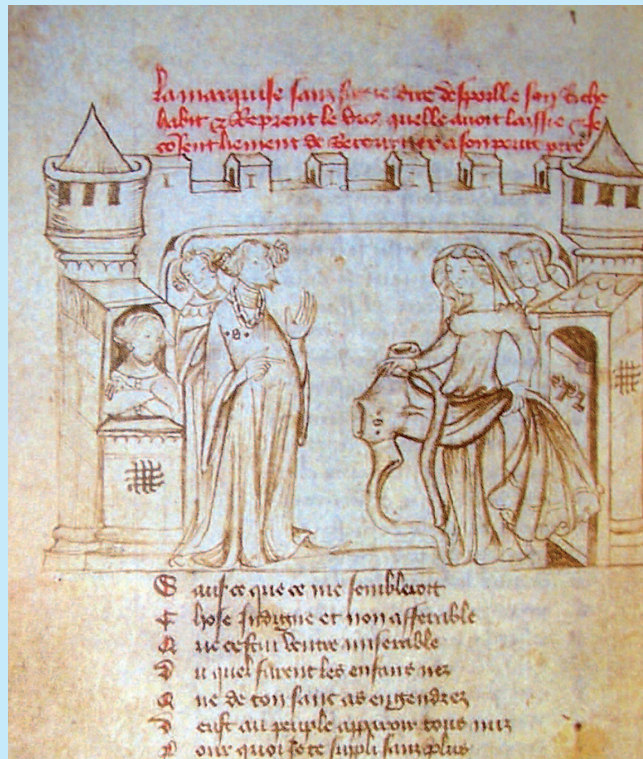 La marquise sanz dire despoille son riche
habit & Reprent le quelle auoit laissie & se
cosent liement de Retourner a son poure pere
S auf ce que ce me sembleroit
C hose indigne et non afferable
Q ue cestui ventre miserable
D u quel furent les enfans nez
Q ue de ton sanc as engendrez
D eust au peuple apparoir tous nuz
P our quoi je te suppli sanz plus